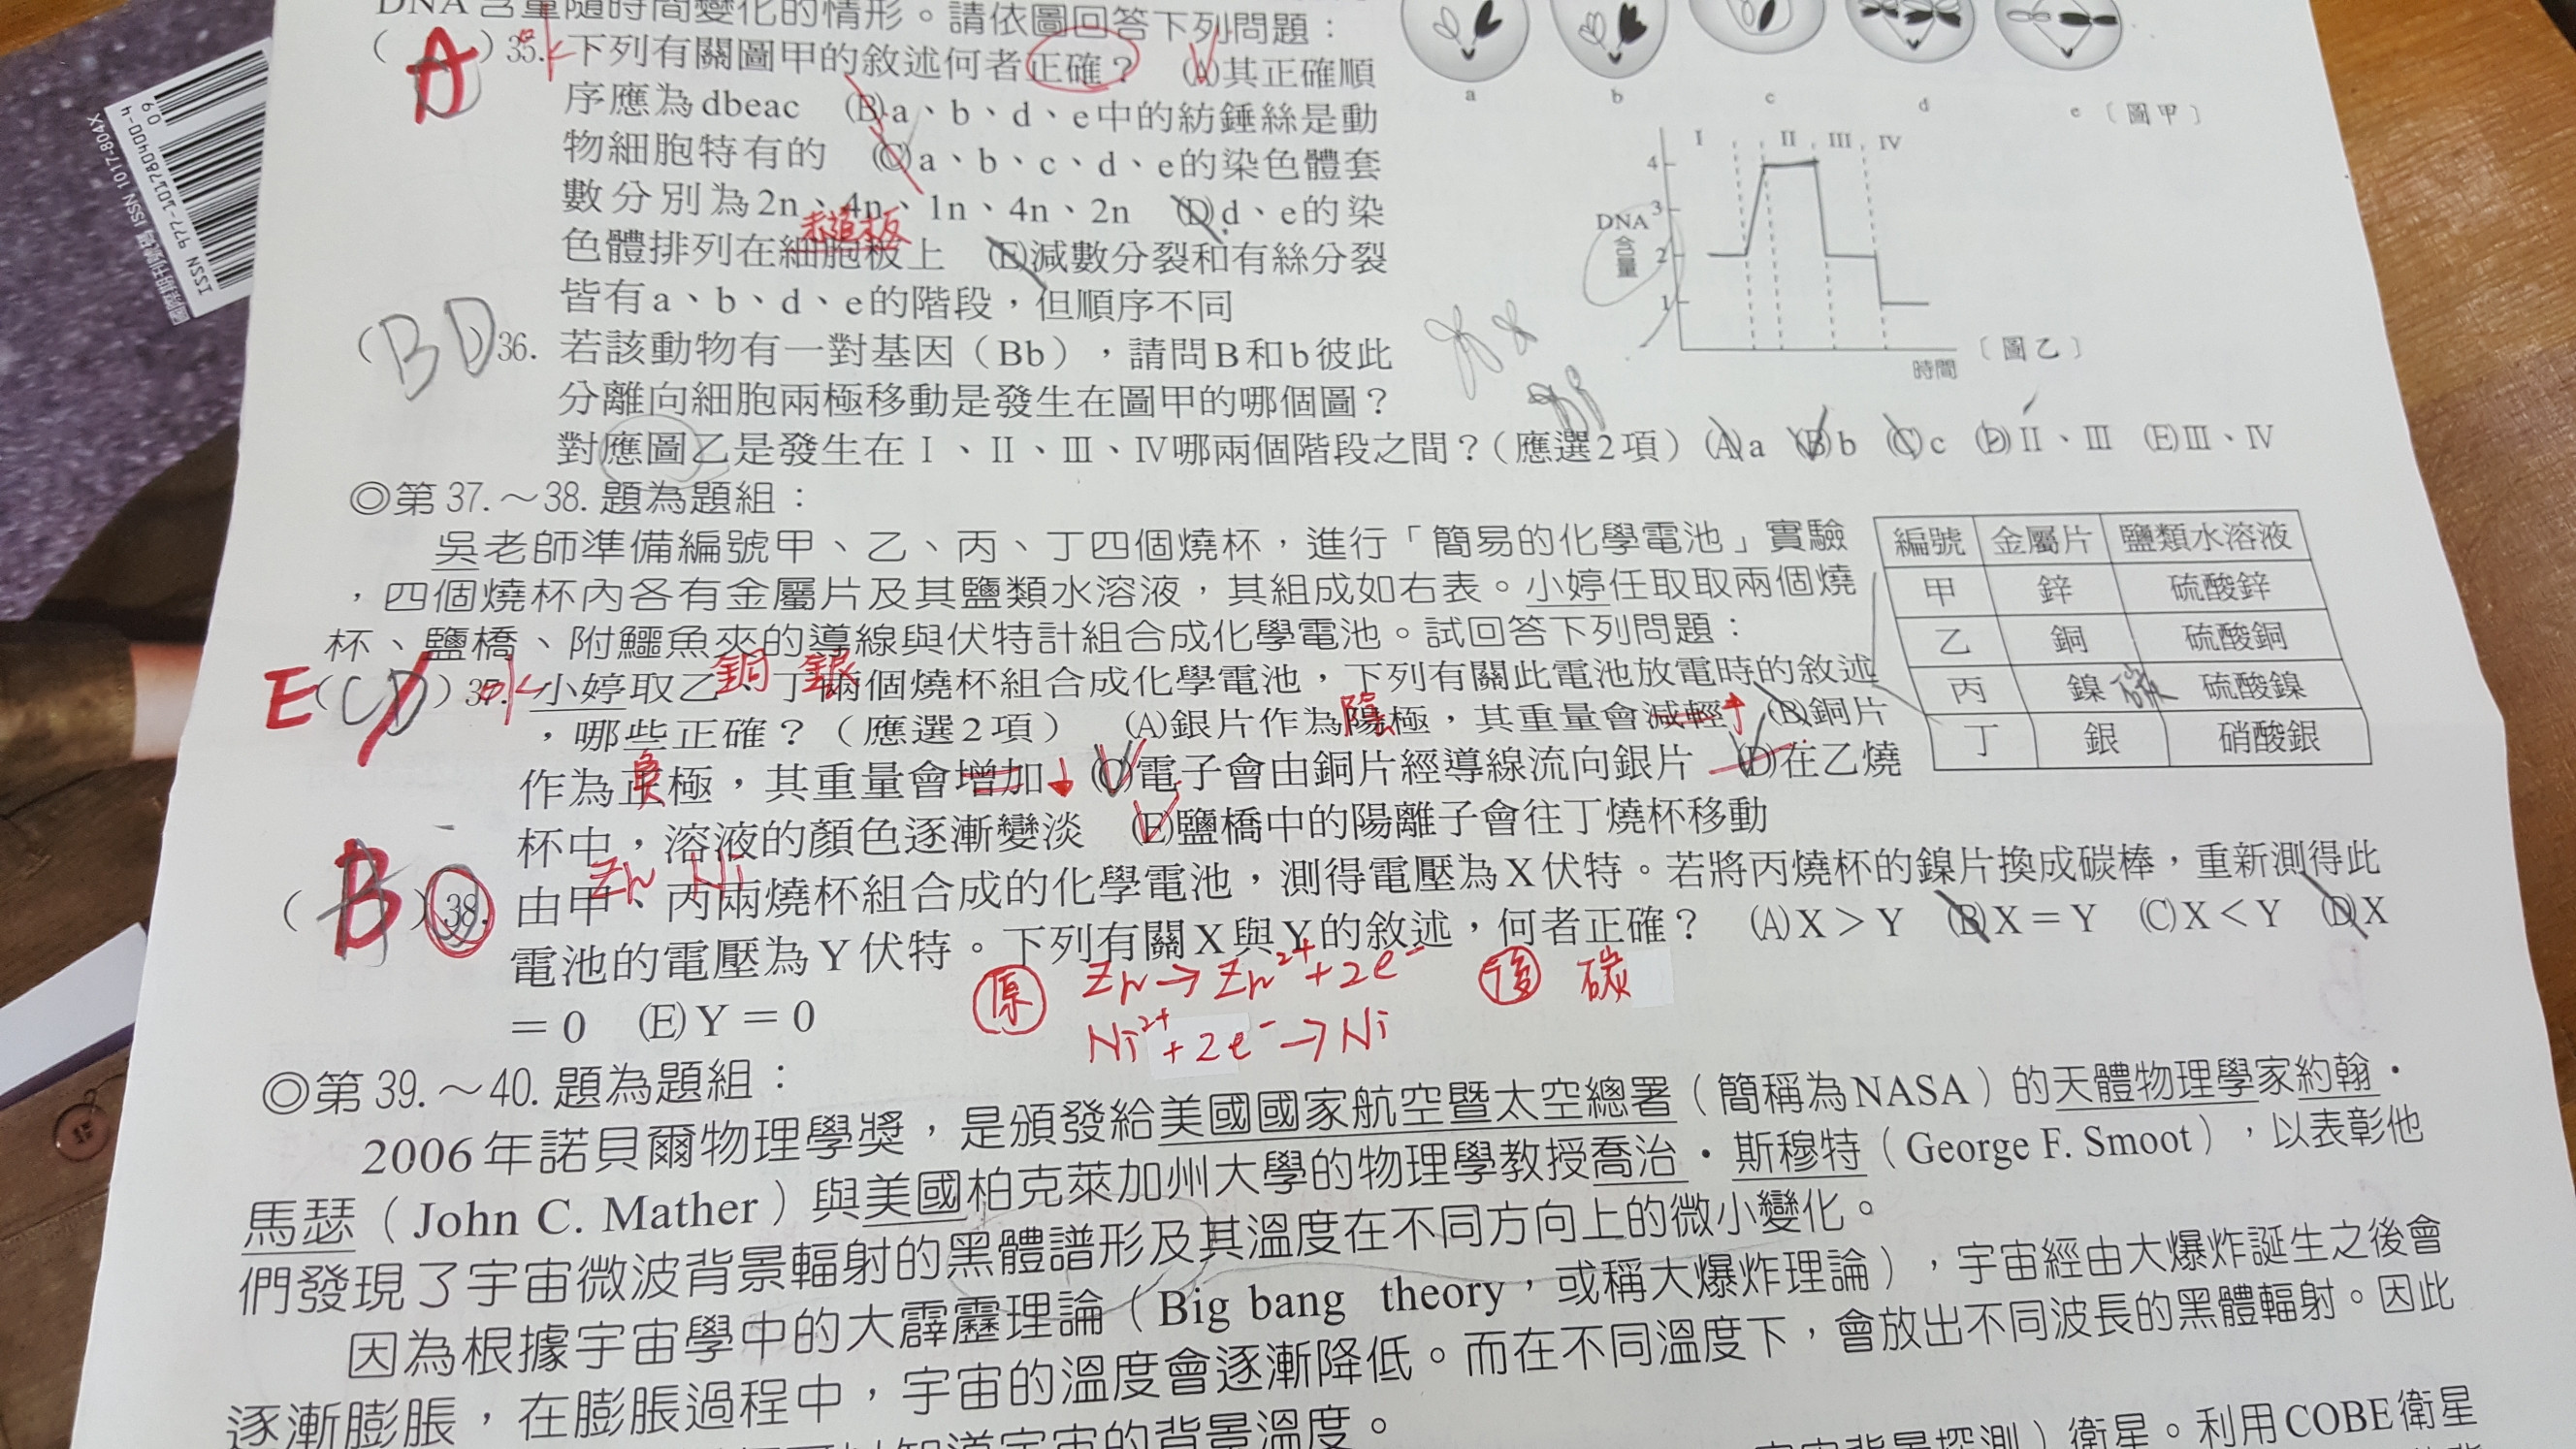 DNA含量隨時間變化的情形。請依圖回答下列問題：
( A )35. 下列有關圖甲的敘述何者正確？ (A)其正確順
序應為dbeac (B)a、b、d、e中的紡錘絲是動
物細胞特有的 (C)a、b、c、d、e的染色體套
數分別為2n、4n、1n、4n、2n (D)d、e的染
赤道板
色體排列在細胞板上 (E)減數分裂和有絲分裂
皆有a、b、d、e的階段，但順序不同
a b c d e 〔圖甲〕
I II III IV
4
3
2
1
DNA含量
時間
〔圖乙〕
(BD)36. 若該動物有一對基因（Bb），請問B和b彼此
分離向細胞兩極移動是發生在圖甲的哪個圖？
對應圖乙是發生在Ⅰ、Ⅱ、Ⅲ、Ⅳ哪兩個階段之間？(應選2項) (A)a (B)b (C)c (D)Ⅱ、Ⅲ (E)Ⅲ、Ⅳ
◎第37.～38.題為題組：
吳老師準備編號甲、乙、丙、丁四個燒杯，進行「簡易的化學電池」實驗
，四個燒杯內各有金屬片及其鹽類水溶液，其組成如右表。小婷任取取兩個燒
杯、鹽橋、附鱷魚夾的導線與伏特計組合成化學電池。試回答下列問題：
編號 金屬片 鹽類水溶液
甲 鋅 硫酸鋅
乙 銅 硫酸銅
丙 鎳 硫酸鎳
丁 銀 硝酸銀
銅 銀
E(CD)37. 小婷取乙、丁兩個燒杯組合成化學電池，下列有關此電池放電時的敘述
，哪些正確？（應選2項） (A)銀片作為陽極，其重量會減輕 (B)銅片
陰
作為正極，其重量會增加 (C)電子會由銅片經導線流向銀片 (D)在乙燒
負
杯中，溶液的顏色逐漸變淡 (E)鹽橋中的陽離子會往丁燒杯移動
Zn Ni
( B )38. 由甲、丙兩燒杯組合成的化學電池，測得電壓為X伏特。若將丙燒杯的鎳片換成碳棒，重新測得此
電池的電壓為Y伏特。下列有關X與Y的敘述，何者正確？ (A)X＞Y (B)X＝Y (C)X＜Y (D)X
＝0 (E)Y＝0
原 Zn→Zn²⁺+2e⁻ 後 碳
Ni²⁺+2e⁻→Ni
◎第39.～40.題為題組：
2006年諾貝爾物理學獎，是頒發給美國國家航空暨太空總署（簡稱為NASA）的天體物理學家約翰·
馬瑟（John C. Mather）與美國柏克萊加州大學的物理學教授喬治·斯穆特（George F. Smoot），以表彰他
們發現了宇宙微波背景輻射的黑體譜形及其溫度在不同方向上的微小變化。
因為根據宇宙學中的大霹靂理論（Big bang theory，或稱大爆炸理論），宇宙經由大爆炸誕生之後會
逐漸膨脹，在膨脹過程中，宇宙的溫度會逐漸降低。而在不同溫度下，會放出不同波長的黑體輻射。因此
知道宇宙的背景溫度。
宇宙背景探測）衛星。利用COBE衛星
ISSN 977-10178040-4
09
ISSN 1017-804X